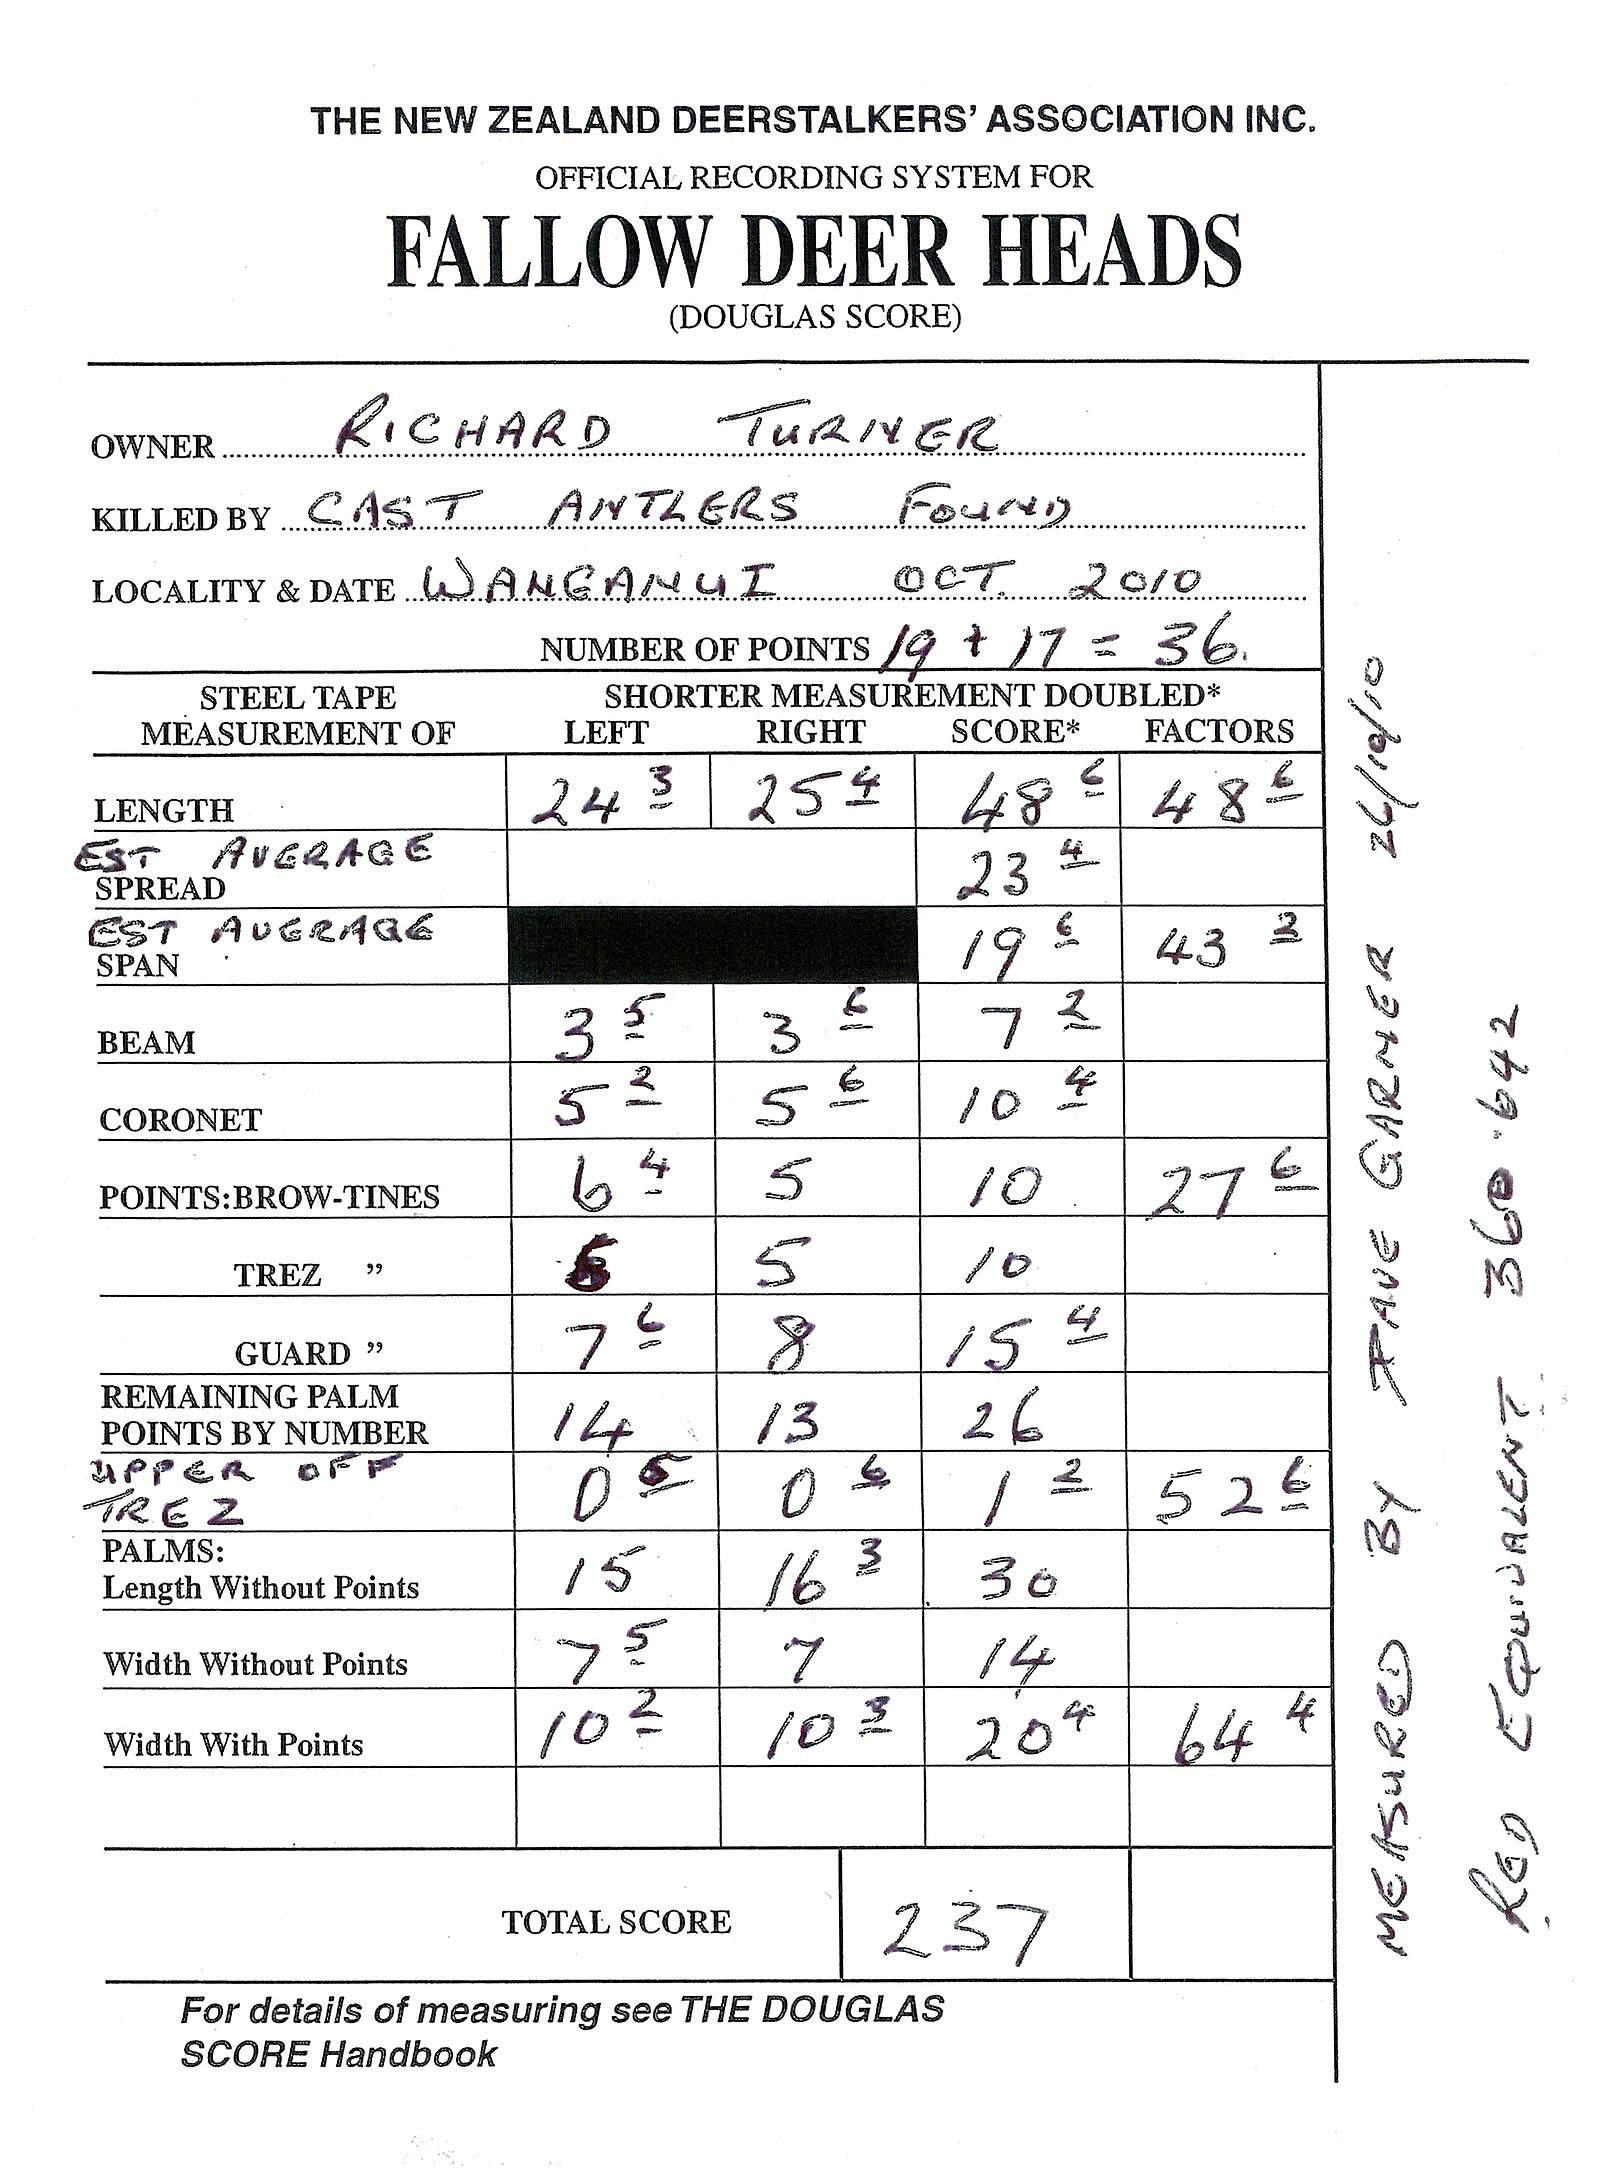 THE NEW ZEALAND DEERSTALKERS' ASSOCIATION INC.
OFFICIAL RECORDING SYSTEM FOR
FALLOW DEER HEADS
(DOUGLAS SCORE)
OWNER RICHARD TURNER
KILLED BY CAST ANTLERS FOUND
LOCALITY & DATE WANGANUI OCT. 2010
NUMBER OF POINTS 19 + 17 = 36.
STEEL TAPE SHORTER MEASUREMENT DOUBLED*
MEASUREMENT OF LEFT RIGHT SCORE* FACTORS
LENGTH 24 3 25 4 48 6 48 6
EST AVERAGE
SPREAD 23 4
EST AVERAGE
SPAN 19 6 43 2
BEAM 3 5 3 6 7 2
CORONET 5 2 5 6 10 4
POINTS:BROW-TINES 6 4 5 10 27 6
TREZ " 5 10
GUARD " 7 6 8 15 4
REMAINING PALM
POINTS BY NUMBER 14 13 26
UPPER OFF
TREZ 0 5 0 6 1 2 52 6
PALMS:
Length Without Points 15 16 3 30
Width Without Points 7 5 7 14
Width With Points 10 2 10 3 20 4 64 4
TOTAL SCORE 237
For details of measuring see THE DOUGLAS
SCORE Handbook
MEASURED BY DAVE GARMER 24/10/10
RED EQUIVALENT 360.642